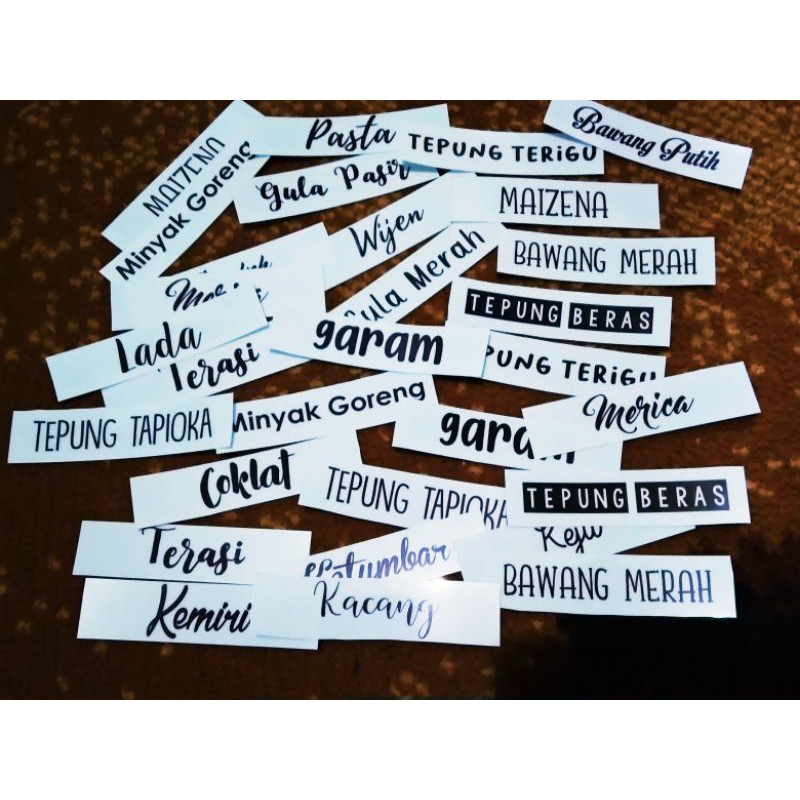 MAIZENA
Minyak Goreng
Pasta
Gula Pasir
TEPUNG TERIGU
Bawang Putih
MAIZENA
Wijen
BAWANG MERAH
Gula Merah
TEPUNG BERAS
Lada
Terasi
garam
TERIGU
Merica
TEPUNG TAPIOKA
Minyak Goreng
garam
Coklat
TEPUNG TAPIOKA
TEPUNG BERAS
Terasi
Ketumbar
Keju
BAWANG MERAH
Kemiri
Kacang